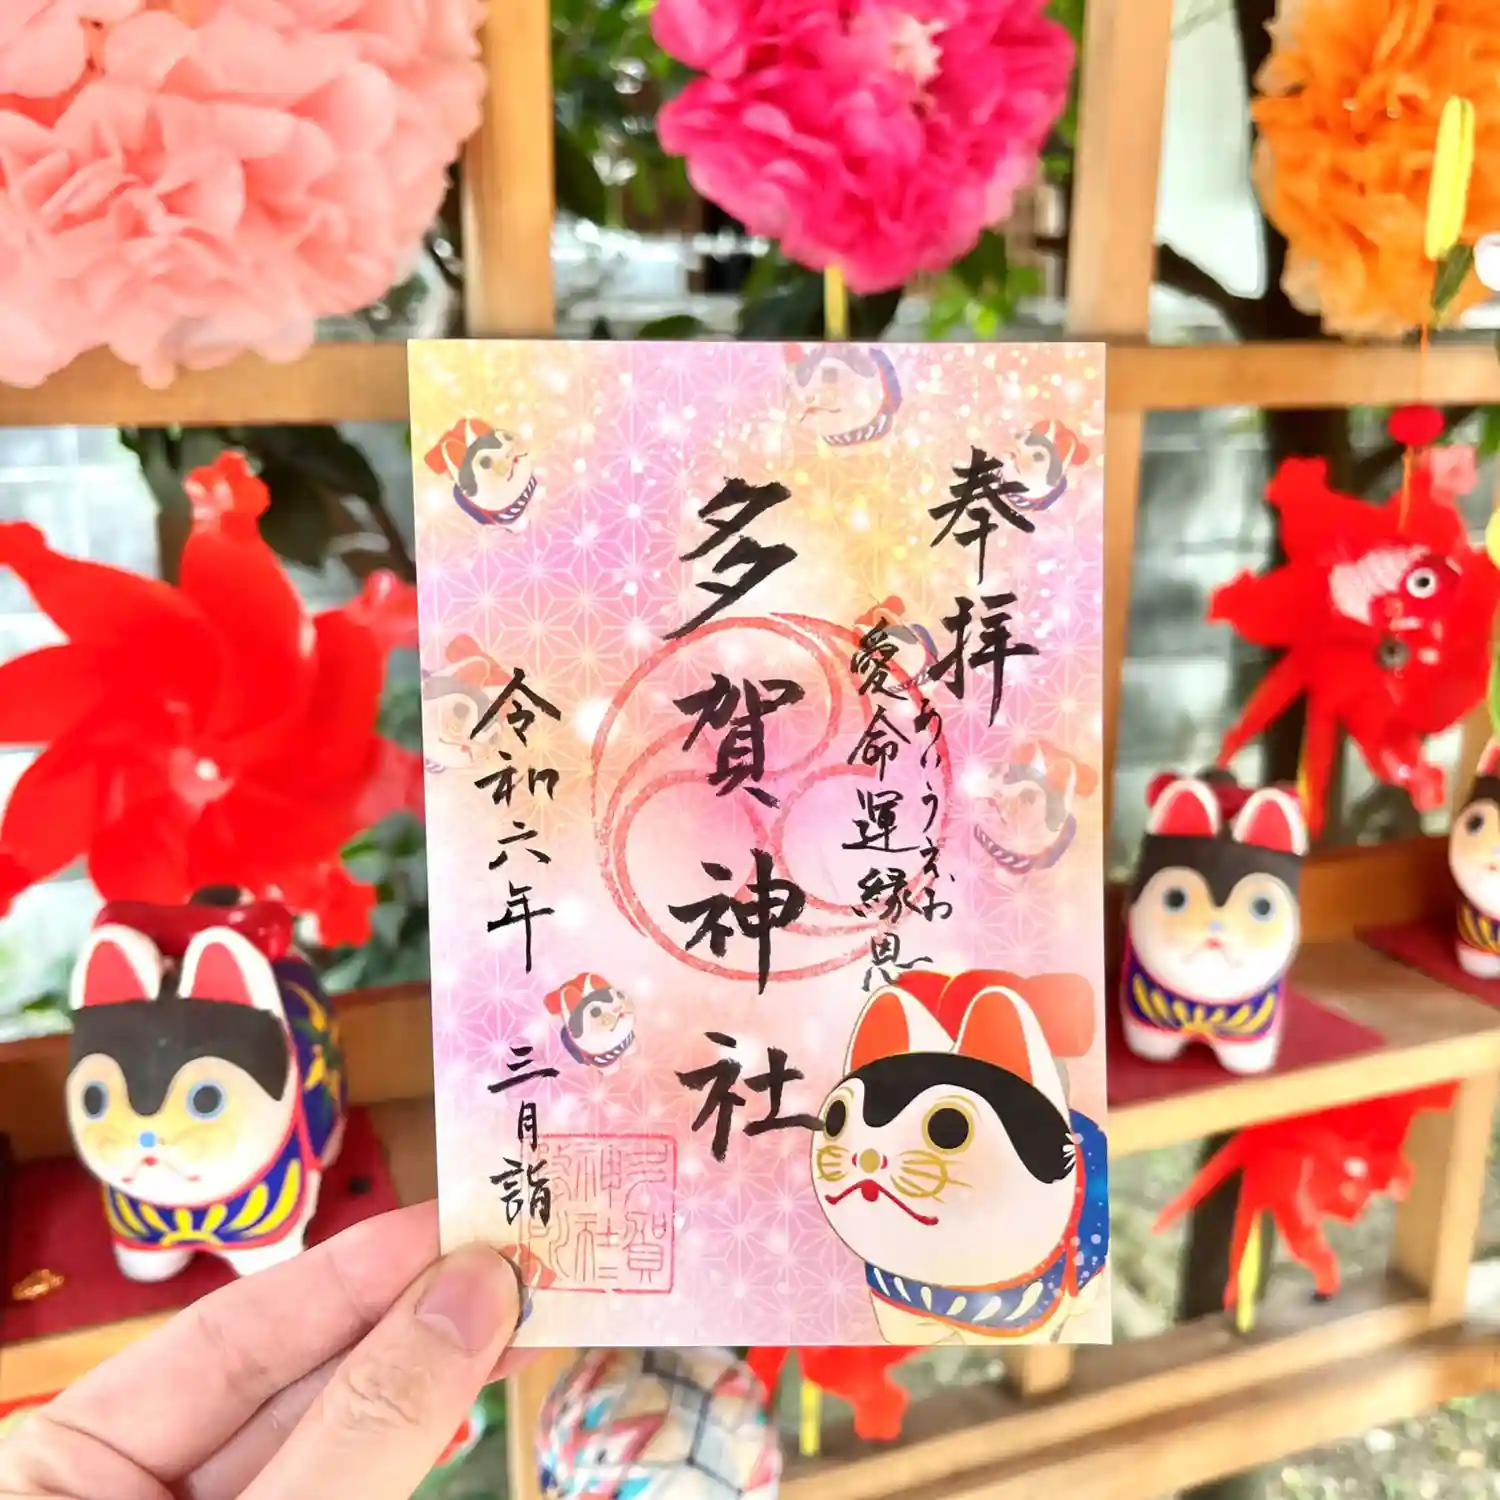 奉拝
あいうえお
愛命運縁恩
多賀神社
令和六年 三月詣
多賀
神社